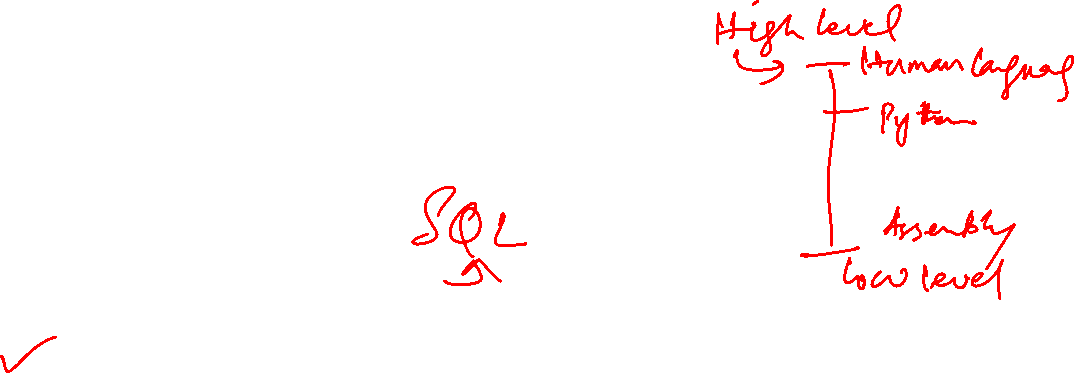 High level
Human language
Python
SQL
Assembly
low level